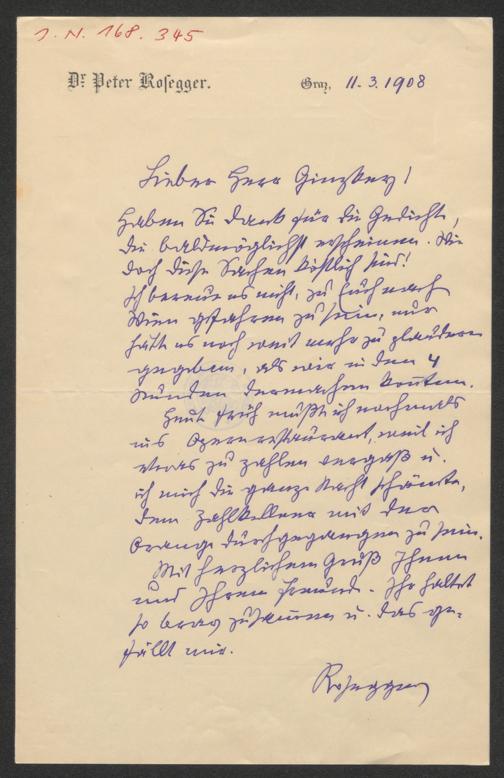 I. N. 168.345
Dr. Peter Rosegger.
Graz, 11.3.1908
Lieber Herr Ginzkey!
Haben Sie Dank für die Gedichte,
die baldmöglichst erscheinen. Wie
doch diese Sachen köstlich sind!
Ich bereue es nicht, zu Euch nach
Wien gefahren zu sein, nur
hätt es noch weit mehr zu plaudern
gegeben, als wir in den 4
Stunden vermochen konnten.
Heut früh mußte ich nochmals
ins Opernrestaurant, weil ich
etwas zu zahlen vergaß u.
ich mich die ganze Nacht schämte,
dem Zahlkellner mit der
Orange durchgegangen zu sein.
Mit herzlichem Gruß Ihnen
und Ihren Freund. Ihr haltet
so brav zusammen u. das ge-
fällt mir.
Rosegger